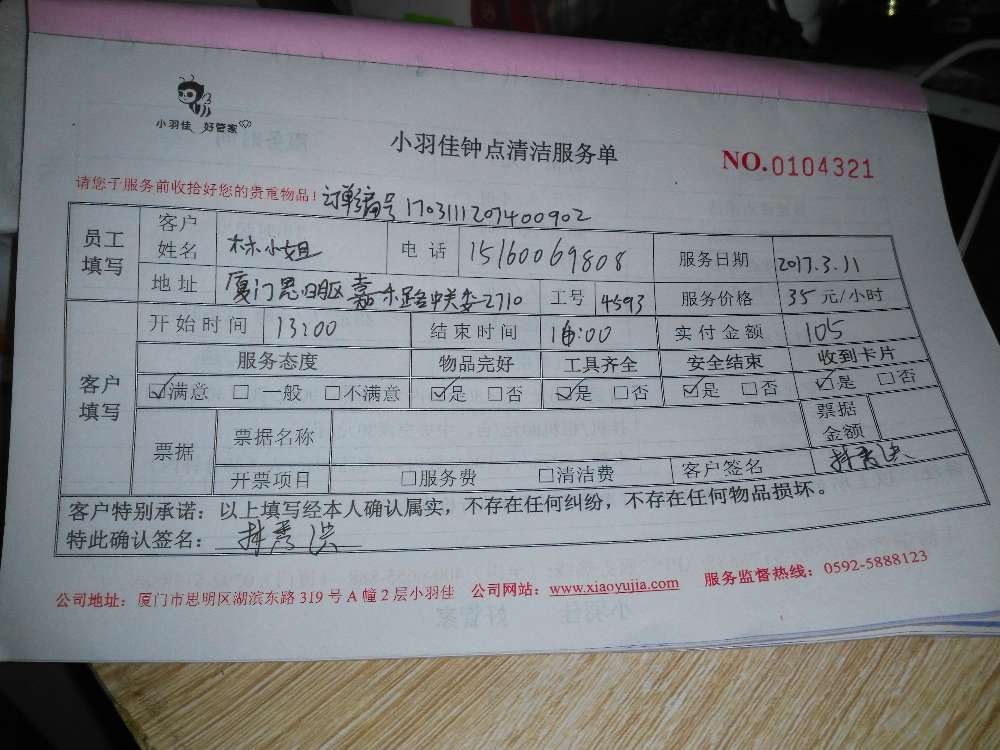 小羽佳 好管家
小羽佳钟点清洁服务单
NO.0104321
请您于服务前收拾好您的贵重物品! 订单编号 1703111207400902
员工填写 客户姓名 林小姐 电话 15160069808 服务日期 2017.3.11
地址 厦门思明区嘉禾路 2710 工号 4593 服务价格 35 元/小时
客户填写 开始时间 13:00 结束时间 16:00 实付金额 105
服务态度 物品完好 工具齐全 安全结束 收到卡片
☑满意 □一般 □不满意 ☑是 □否 ☑是 □否 ☑是 □否 ☑是 □否
票据 票据名称 票据金额
开票项目 □服务费 □清洁费 客户签名 林秀
客户特别承诺：以上填写经本人确认属实，不存在任何纠纷，不存在任何物品损坏。
特此确认签名： 林秀
公司地址：厦门市思明区湖滨东路 319 号 A 幢 2 层小羽佳 公司网站：www.xiaoyujia.com 服务监督热线：0592-5888123